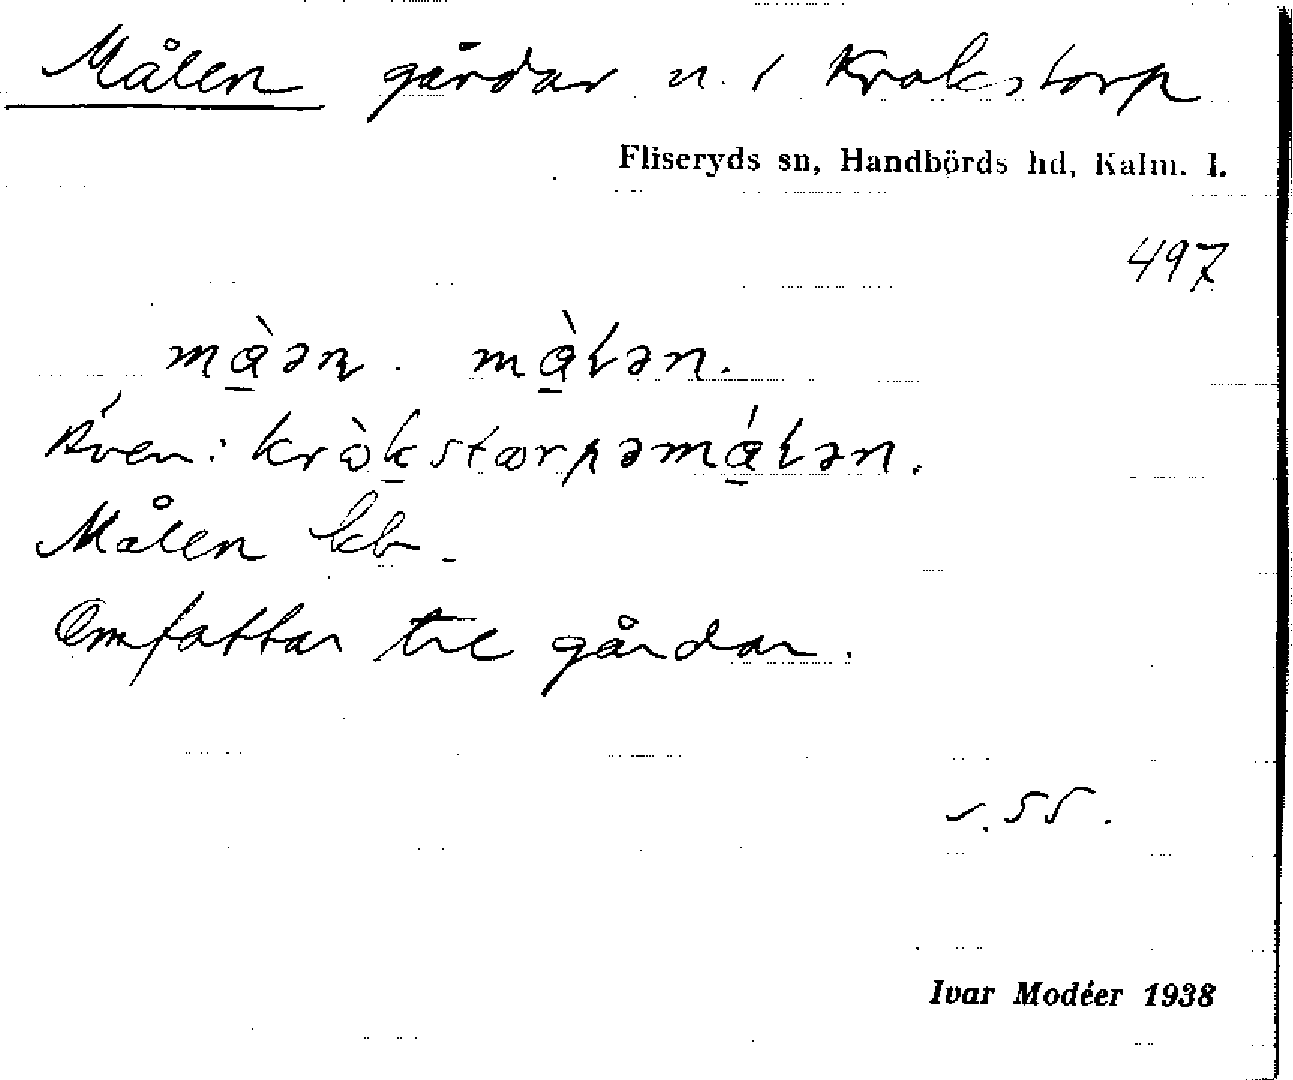 Målen gårdar n. / Krokstorp
Fliseryds sn, Handbörds hd, Kalm. l.
497
mɑ̱̀ən . mɑ̱̀ɫən.
Även: kròḵstorpəmɑ̱́ɫən.
Målen kb.
Omfattar tre gårdar.
s. 55.
Ivar Modéer 1938